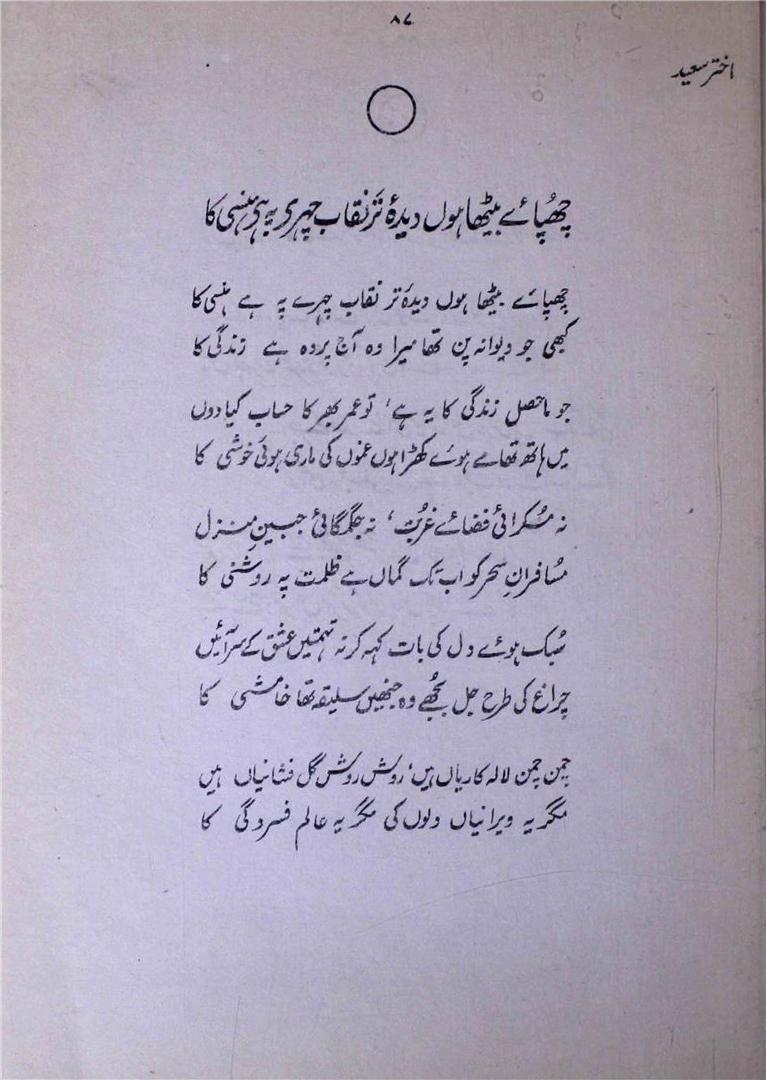 ۸۷
اختر سعید
چھُپائے بیٹھا ہوں دیدۂ تَر نقاب چہرے پہ ہے ہنسی کا
چھپائے بیٹھا ہوں دیدۂ تر نقاب چہرے پہ ہے ہنسی کا
کبھی جو دیوانہ پن تھا میرا وہ آج پردہ ہے زندگی کا
جو ماحصل زندگی کا یہ ہے، تو عمر بھر کا حساب کیا دوں
میں ہاتھ تھامے ہوئے کھڑا ہوں غموں کی ماری ہوئی خوشی کا
نہ مُسکرائی فضائے غربت، نہ جگمگائی جبینِ منزل
مُسافرانِ سحر کو اب تک گماں ہے ظلمت پہ روشنی کا
سُبک ہوئے دل کی بات کہہ کر نہ تہمتیں عشق کے سر آئیں
چراغ کی طرح جل بُجھے وہ جنھیں سلیقہ تھا خامشی کا
چمن چمن لالہ کاریاں ہیں، روش روش گل فشانیاں ہیں
مگر یہ ویرانیاں دلوں کی مگر یہ عالم فسردگی کا